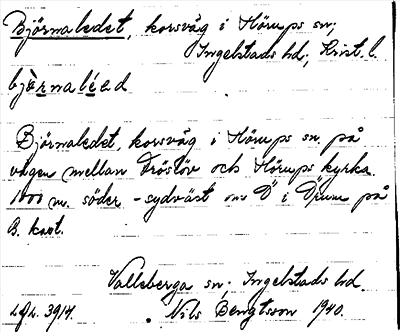 Björnaledet, korsväg i Hörups sn;
Ingelstads hd, Krist. l.
bjö̀rnaléed
Björnaledet, korsväg i Hörups sn. på
vägen mellan Fröslöv och Hörups kyrka.
1000 m. söder-sydväst om "D" i Drum på
B. kart.
Valleberga sn. Ingelstads hd.
Nils Bengtsson 1940.
3914.